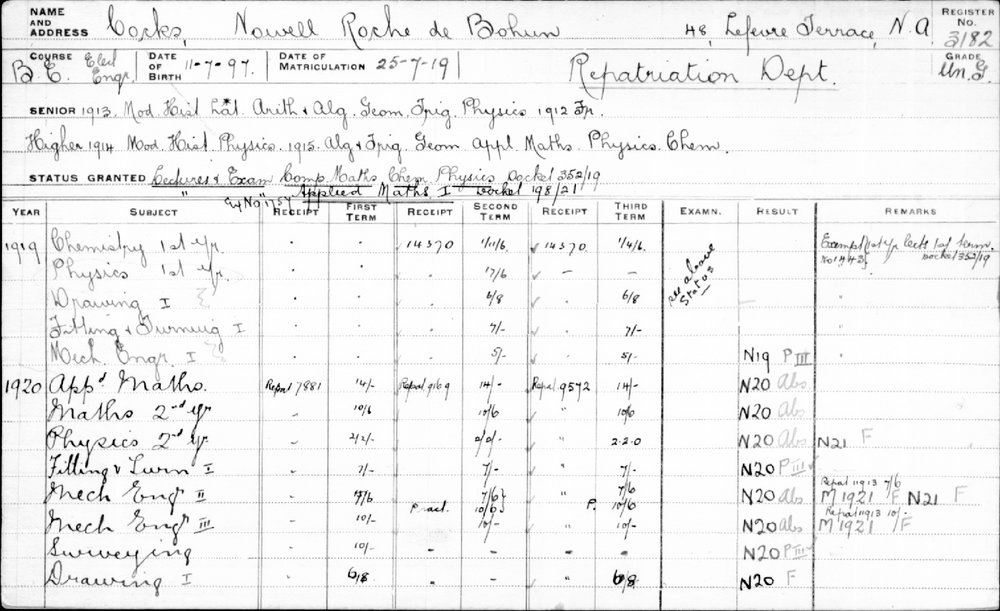 NAME AND ADDRESS Cocks, Nowell Roche de Bohun 48, Lefevre Terrace, N.A. REGISTER No. 3182
COURSE B.E. Elect Engr. DATE OF BIRTH 11-7-97. DATE OF MATRICULATION 25-7-19 Repatriation Dept. GRADE Un. G
SENIOR 1913. Mod. Hist. Lat. Arith & Alg. Geom. Trig. Physics 1912 Fr.
Higher 1914 Mod. Hist. Physics. 1915. Alg & Trig. Geom. Appl. Maths. Physics. Chem.
STATUS GRANTED Lectures & Exam Comp. Maths Chem. Physics Docket 352/19
" " Applied Maths I Docket 198/21
YEAR SUBJECT RECEIPT FIRST TERM RECEIPT SECOND TERM RECEIPT THIRD TERM EXAMN. RESULT REMARKS
1919 Chemistry 1st yr. . . 14570 1/11/6. 14570. 1/4/6. see above Status Exempt 1st yr lects 1st term.
Physics 1st yr. . . 17/6 – – No 1443 Docket 352/19
Drawing I . . 6/8 6/8 "
Fitting & Turning I . . 7/- 7/- "
Mech. Engr. I . . 5/- 5/- N19 P III "
1920 Appd Maths. Repat 7881 14/- Repat 9169 14/- Repat 9572 14/- N20 Abs
Maths 2nd yr 10/6 10/6 " 10/6 N20 Abs
Physics 2nd yr 2/2/- 2/2/- " 2.2.0 N20 Abs N21 F
Fitting & Turn I 7/- 7/- " 7/- N20 P III
Repat 11913 7/6
Mech Engr II 7/6 Pract. 7/6 10/6 " P. 7/6 10/6 N20 Abs M 1921 F N21 F
Repat 11913 10/-
Mech Engr III 10/- 10/- " 10/- N20 Abs M 1921 F
Surveying 10/- – – – – N20 P III
Drawing I 6/8 – – " 6/8 N20 F